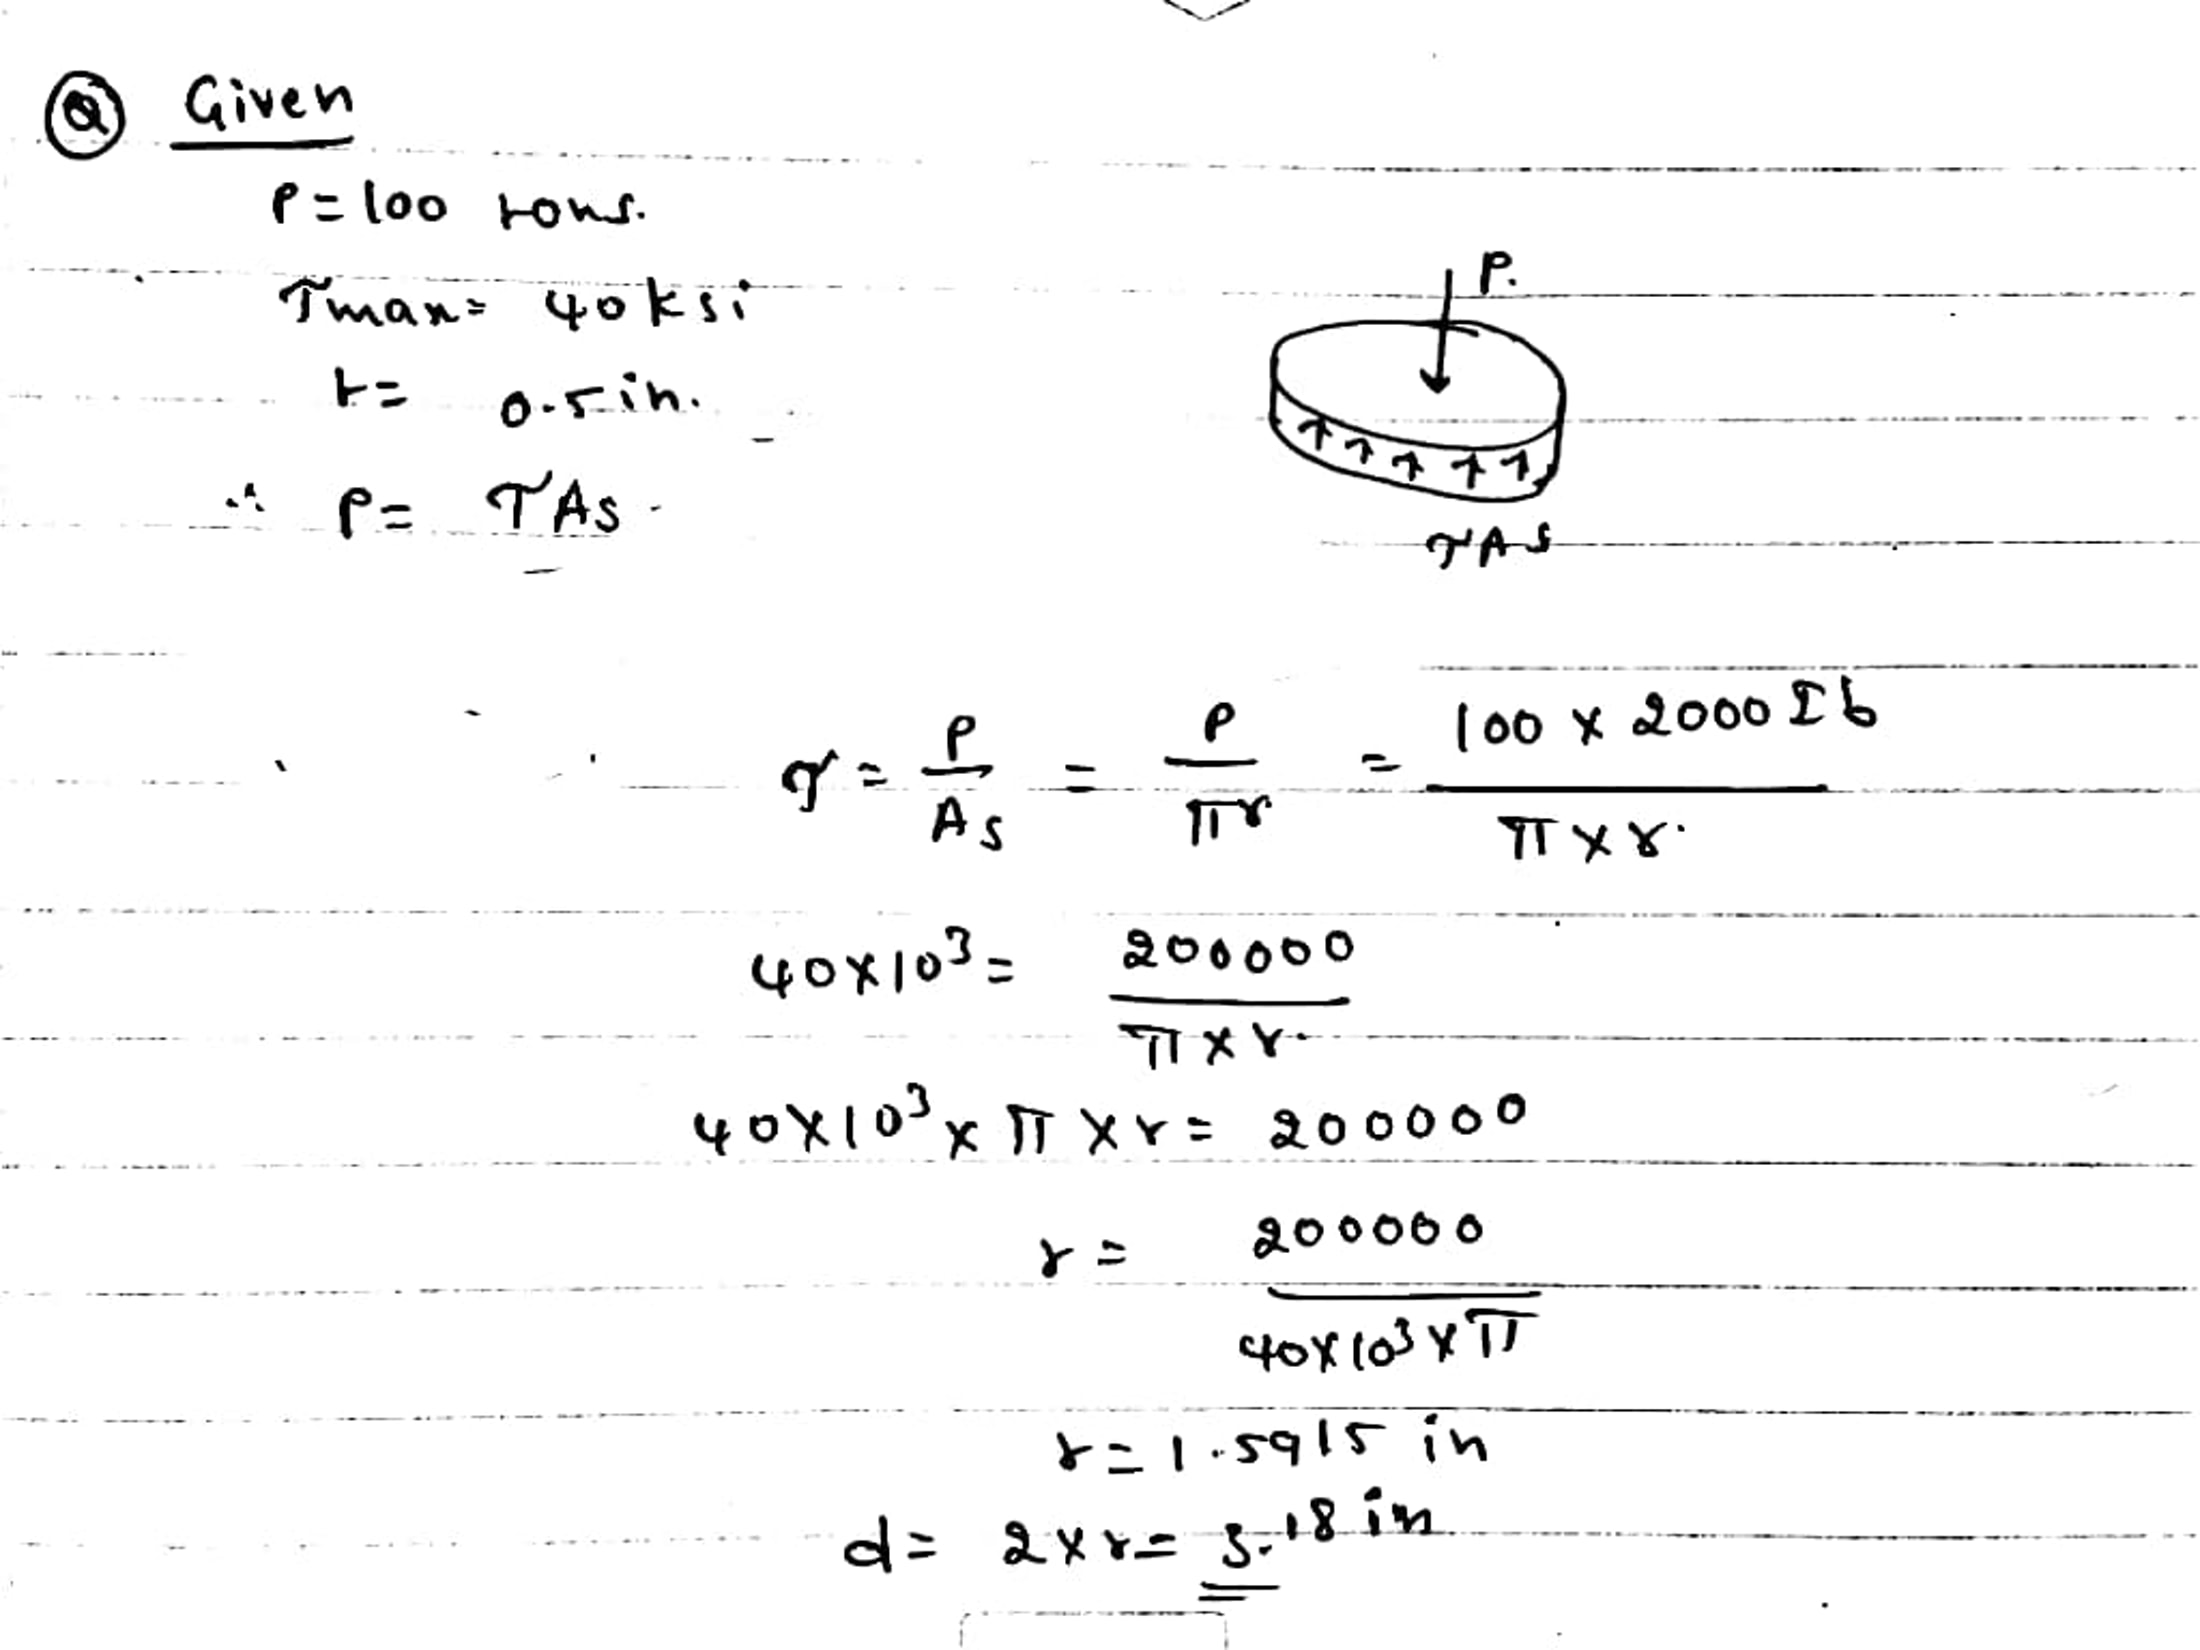 Q Given
P = 100 tons.
τmax = 40 ksi
t = 0.5 in.
∴ P = τAs
P.
τAs
τ = P/As = P/πr = 100 × 2000 Ib/π × r.
40×10³ = 200000/π × r.
40×10³ × π × r = 200000
r = 200000/40×10³ × π
r = 1.5915 in
d = 2 × r = 3.18 in